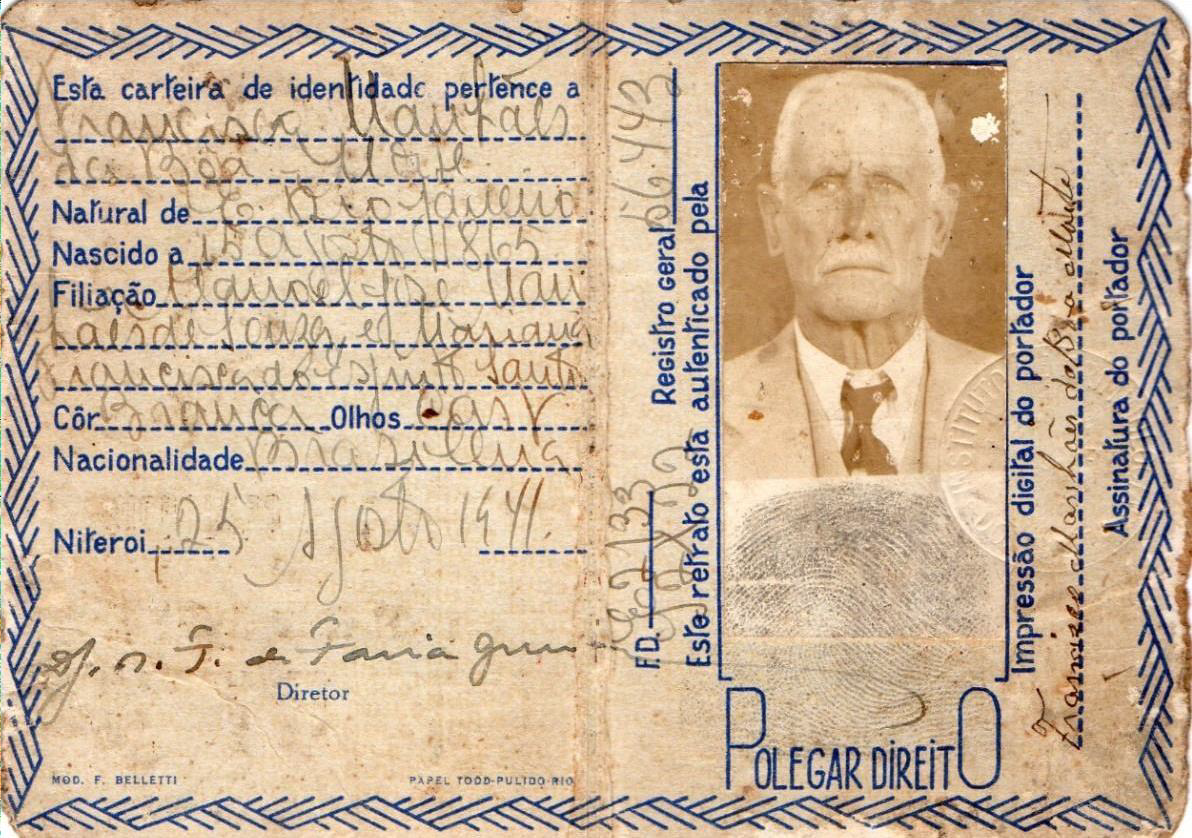 Esta carteira de identidade pertence a
Francisco Manhães
da Bôa Morte
Natural de E. Rio Janeiro
Nascido a 15 Agosto 1865
Filiação Manoel José Man
hães de Souza, e Mariana
Francisca do Espirito Santo
Côr Branca Olhos Cast.
Nacionalidade Brasileira
Niteroi 25 Agosto 1941.
de Faria
Diretor
MOD. F. BELLETTI
PAPEL TODD-PULIDO-RIO
F.D. Registro geral
Este retrato está autenticado pela
POLEGAR DIREITO
Impressão digital do portador
Francisco Manhães da Boa Morte
Assinatura do portador